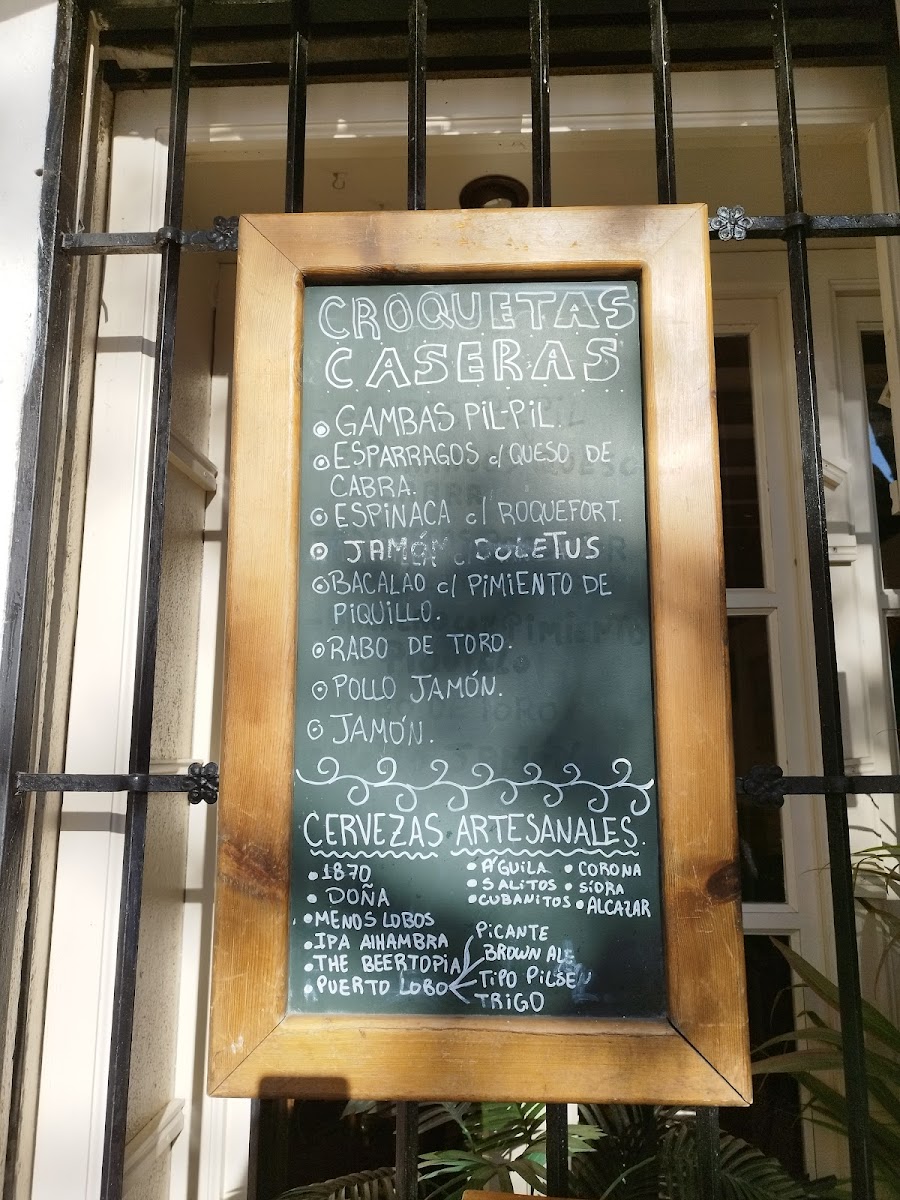 CROQUETAS
CASERAS
GAMBAS PIL-PIL.
ESPARRAGOS c/ QUESO DE
CABRA.
ESPINACA c/ ROQUEFORT.
JAMÓN c/ BOLETUS
BACALAO c/ PIMIENTO DE
PIQUILLO.
RABO DE TORO.
POLLO JAMÓN.
JAMÓN.
CERVEZAS ARTESANALES.
1870
DOÑA
MENOS LOBOS
IPA AlHAMBRA
THE BEERTOPIA
PUERTO LOBO
ÁGUILA
SALITOS
CUBANITOS
CORONA
SIDRA
ALCAZAR
PICANTE
BROWN ALE
TIPO PILSEN
TRIGO